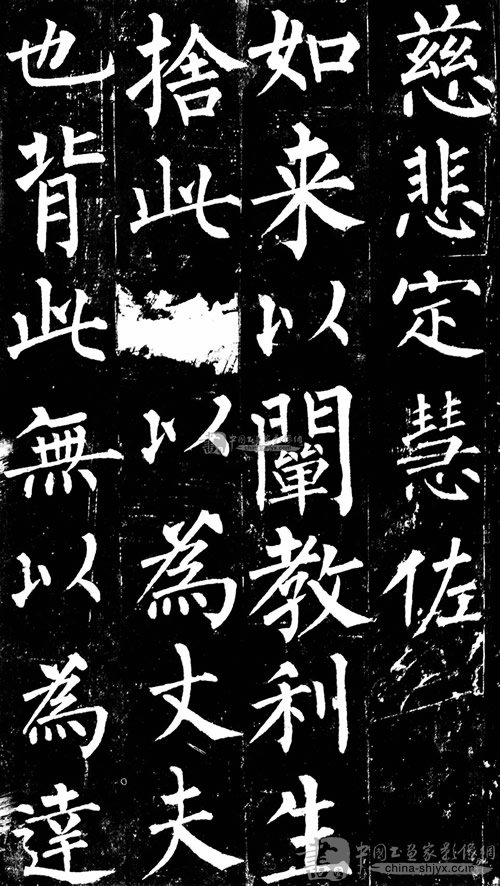 慈悲定慧佐
如来以闡教利生
捨此以為丈夫
也背此無以為達
china-shjyx.com